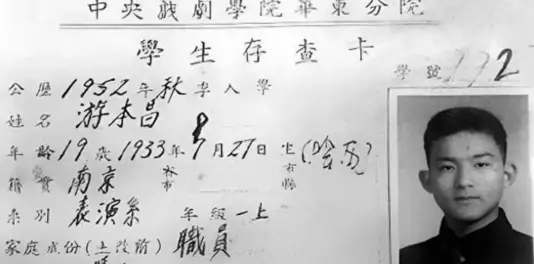 中央戲劇學院華東分院
學生存查卡
學號
公歷1952年秋季入學
姓名 游本昌
年齡19歲1933年 月27日生
籍貫 南京 市縣
系別 表演系 年級 一上
家庭成份(土改前) 職員